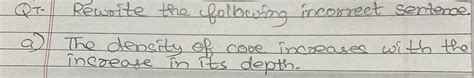 Q7. Rewrite the following incorrect sentence.
a) The density of core increases with the
increase in its depth.